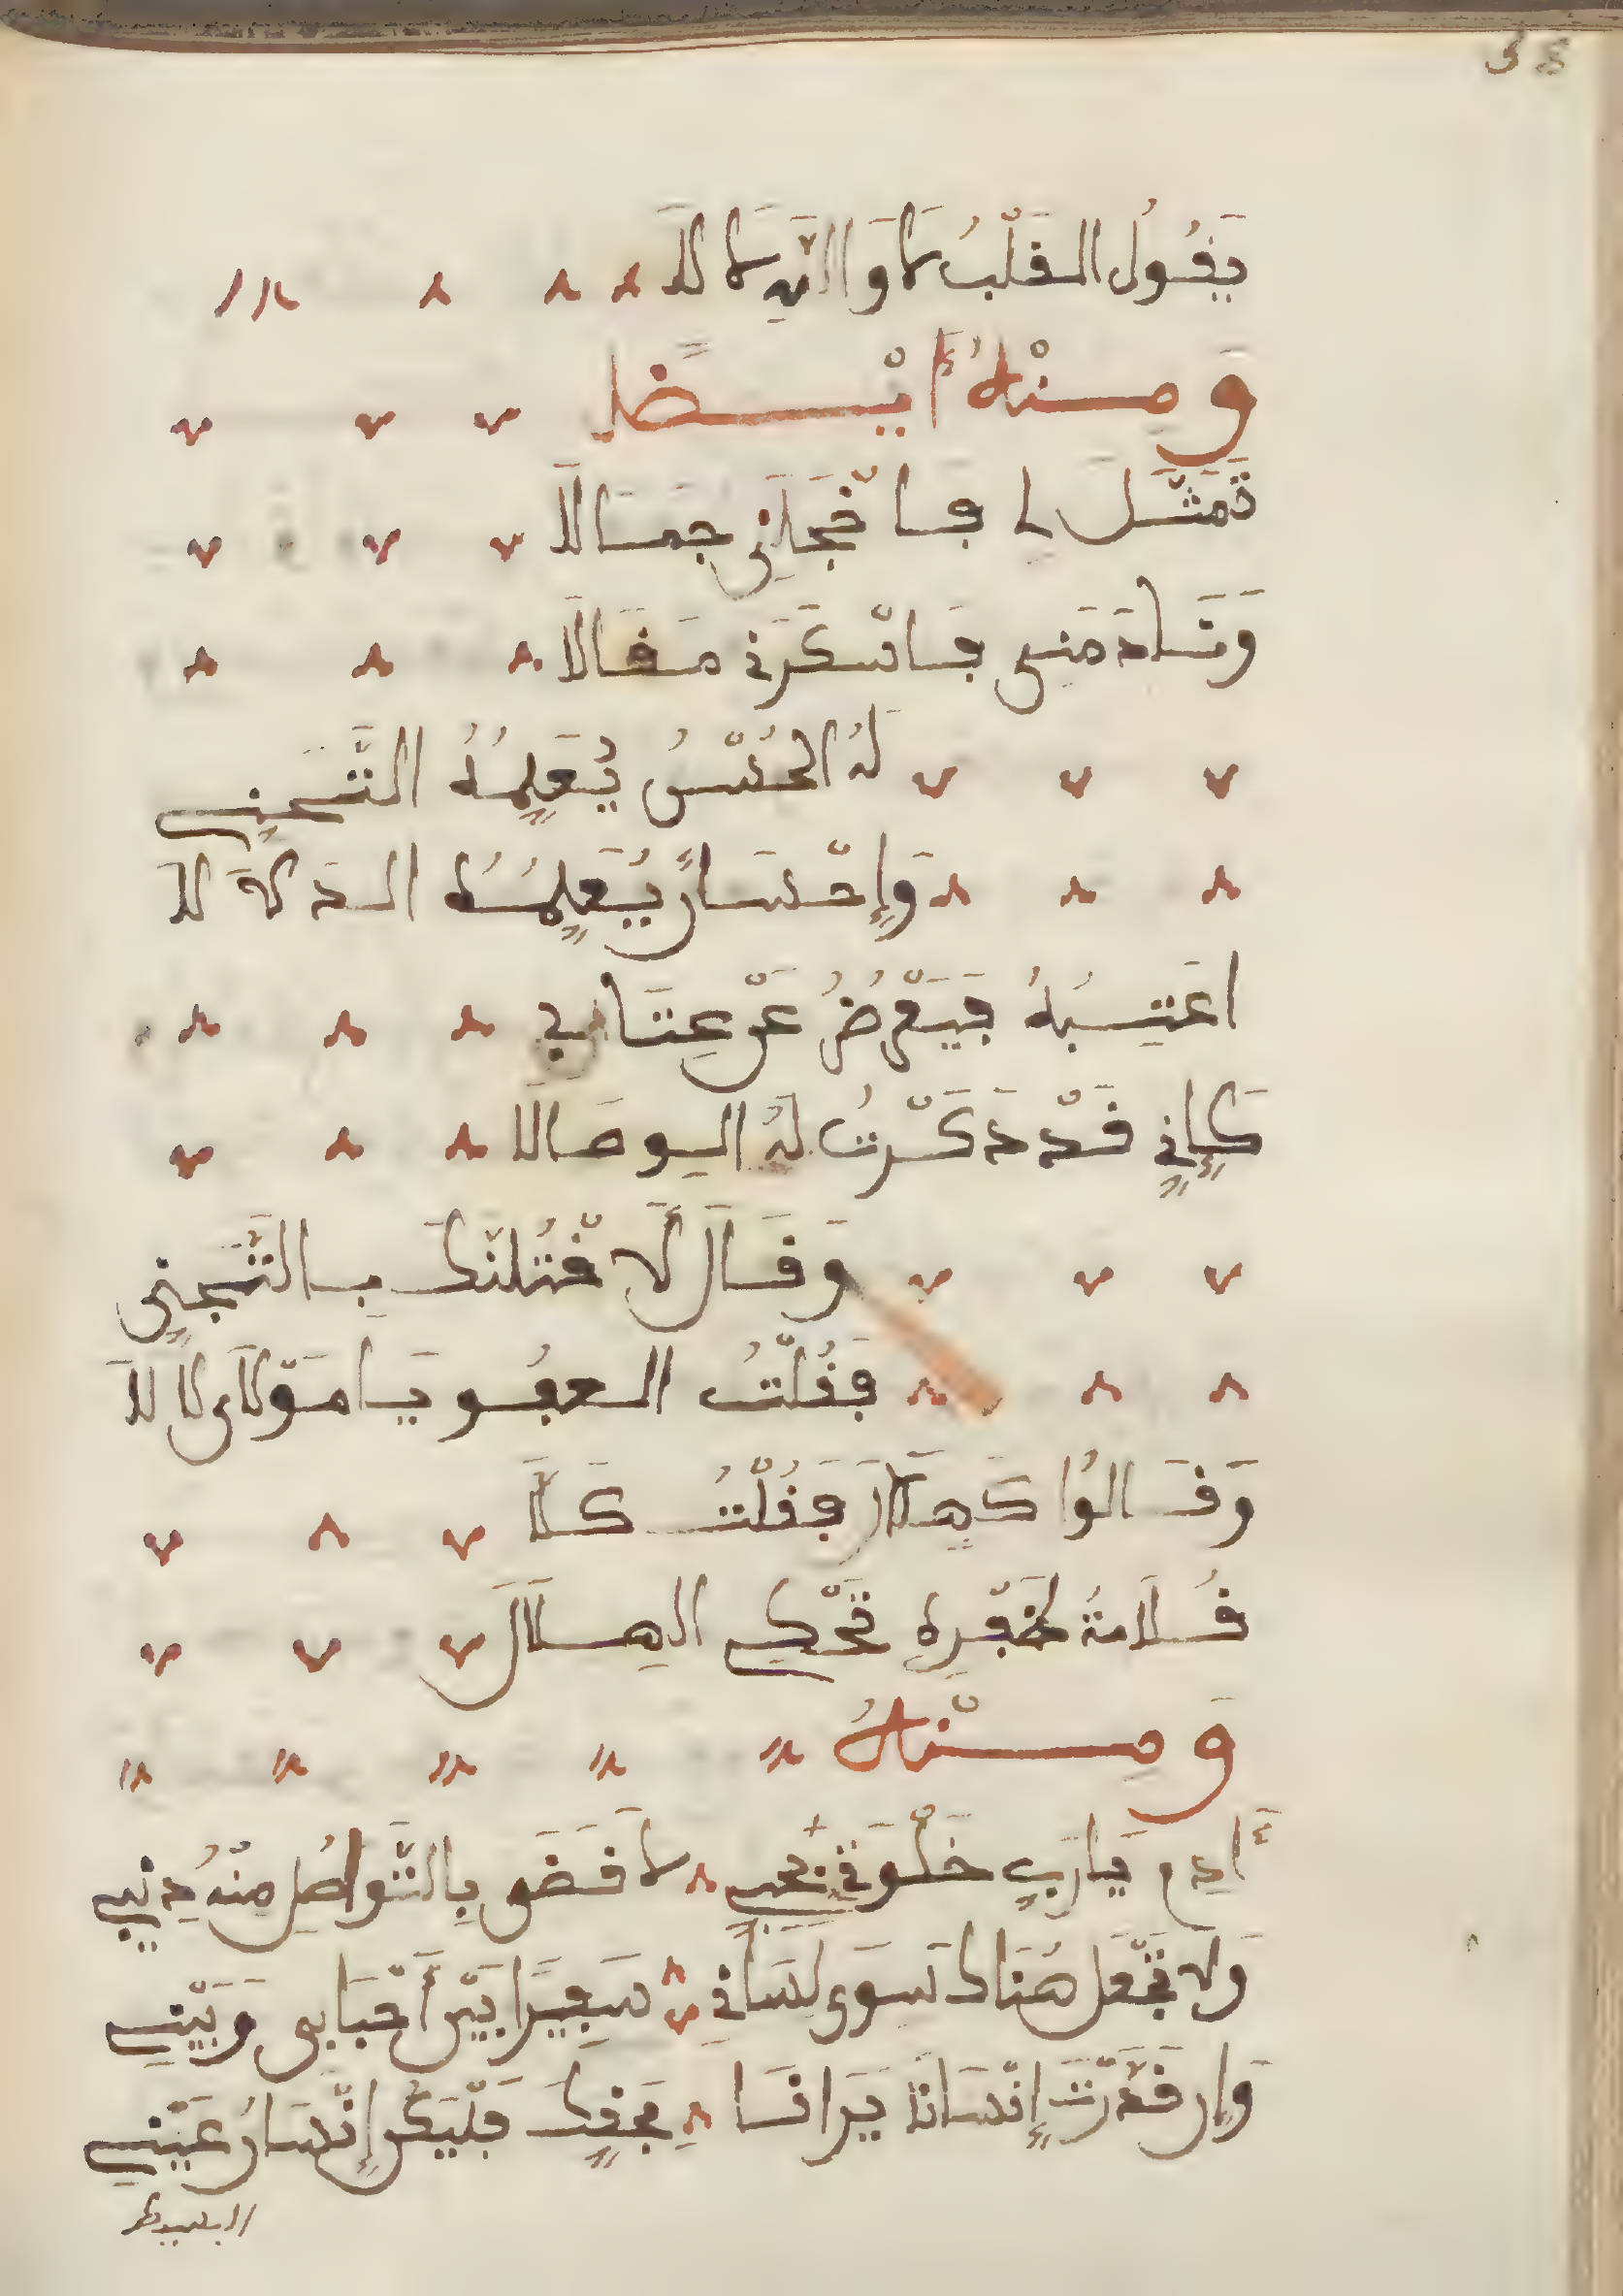 يَقُولُ القَلْبُ لَا وَاللَّهِ لَا لَا
وَمِنْهُ أَيْضًا
تَمَثَّلَ لِي فَأَخْجَلَنِي جَمَالَا
وَنَادَمَنِي فَأَسْكَرَنِي مَقَالَا
لَهُ الحُسْنُ يُعَلِّمُهُ التَّجَنِّي
وَإِحْسَانٌ يُعَلِّمُهُ الدَلَالَا
اعَتِبُهُ فَيَعْرِضُ عَنْ عِتَابِي
كَإِنِّي قَدْ ذَكَرْتُ لَهُ الوِصَالَا
وَقَالَ لَأَقْتُلَنَّكَ بِالتَّجَنِّي
فَقُلْتُ العَفُو يَا مَوْلَايَ لَا لَا
وَقَالُوا كَهِلَالٍ فَقُلْتُ كَلَّا
قُلَامَةُ ظُفْرِهِ تَحْكِي الهِلَالَ
وَمِنْهُ
أَدِم يَا رَبِّ خَلْوَتَنَا بِحُبِّي لَا قَضَى بِالتَّوَاصُلِ مِنْهُ دِيْنِي
وَلَا تَجْعَل هُنَاكَ سَوَى لِسَانِي سَفِيرًا بَيْنَ أَحْبَابِي وَبَيْنِي
وَإِن قَدَّرْتَ إِنْسَانًا يَرَانَا بِحَقِّكَ فَلْيَكُن إِنْسَانُ عَيْنِي
البسيط